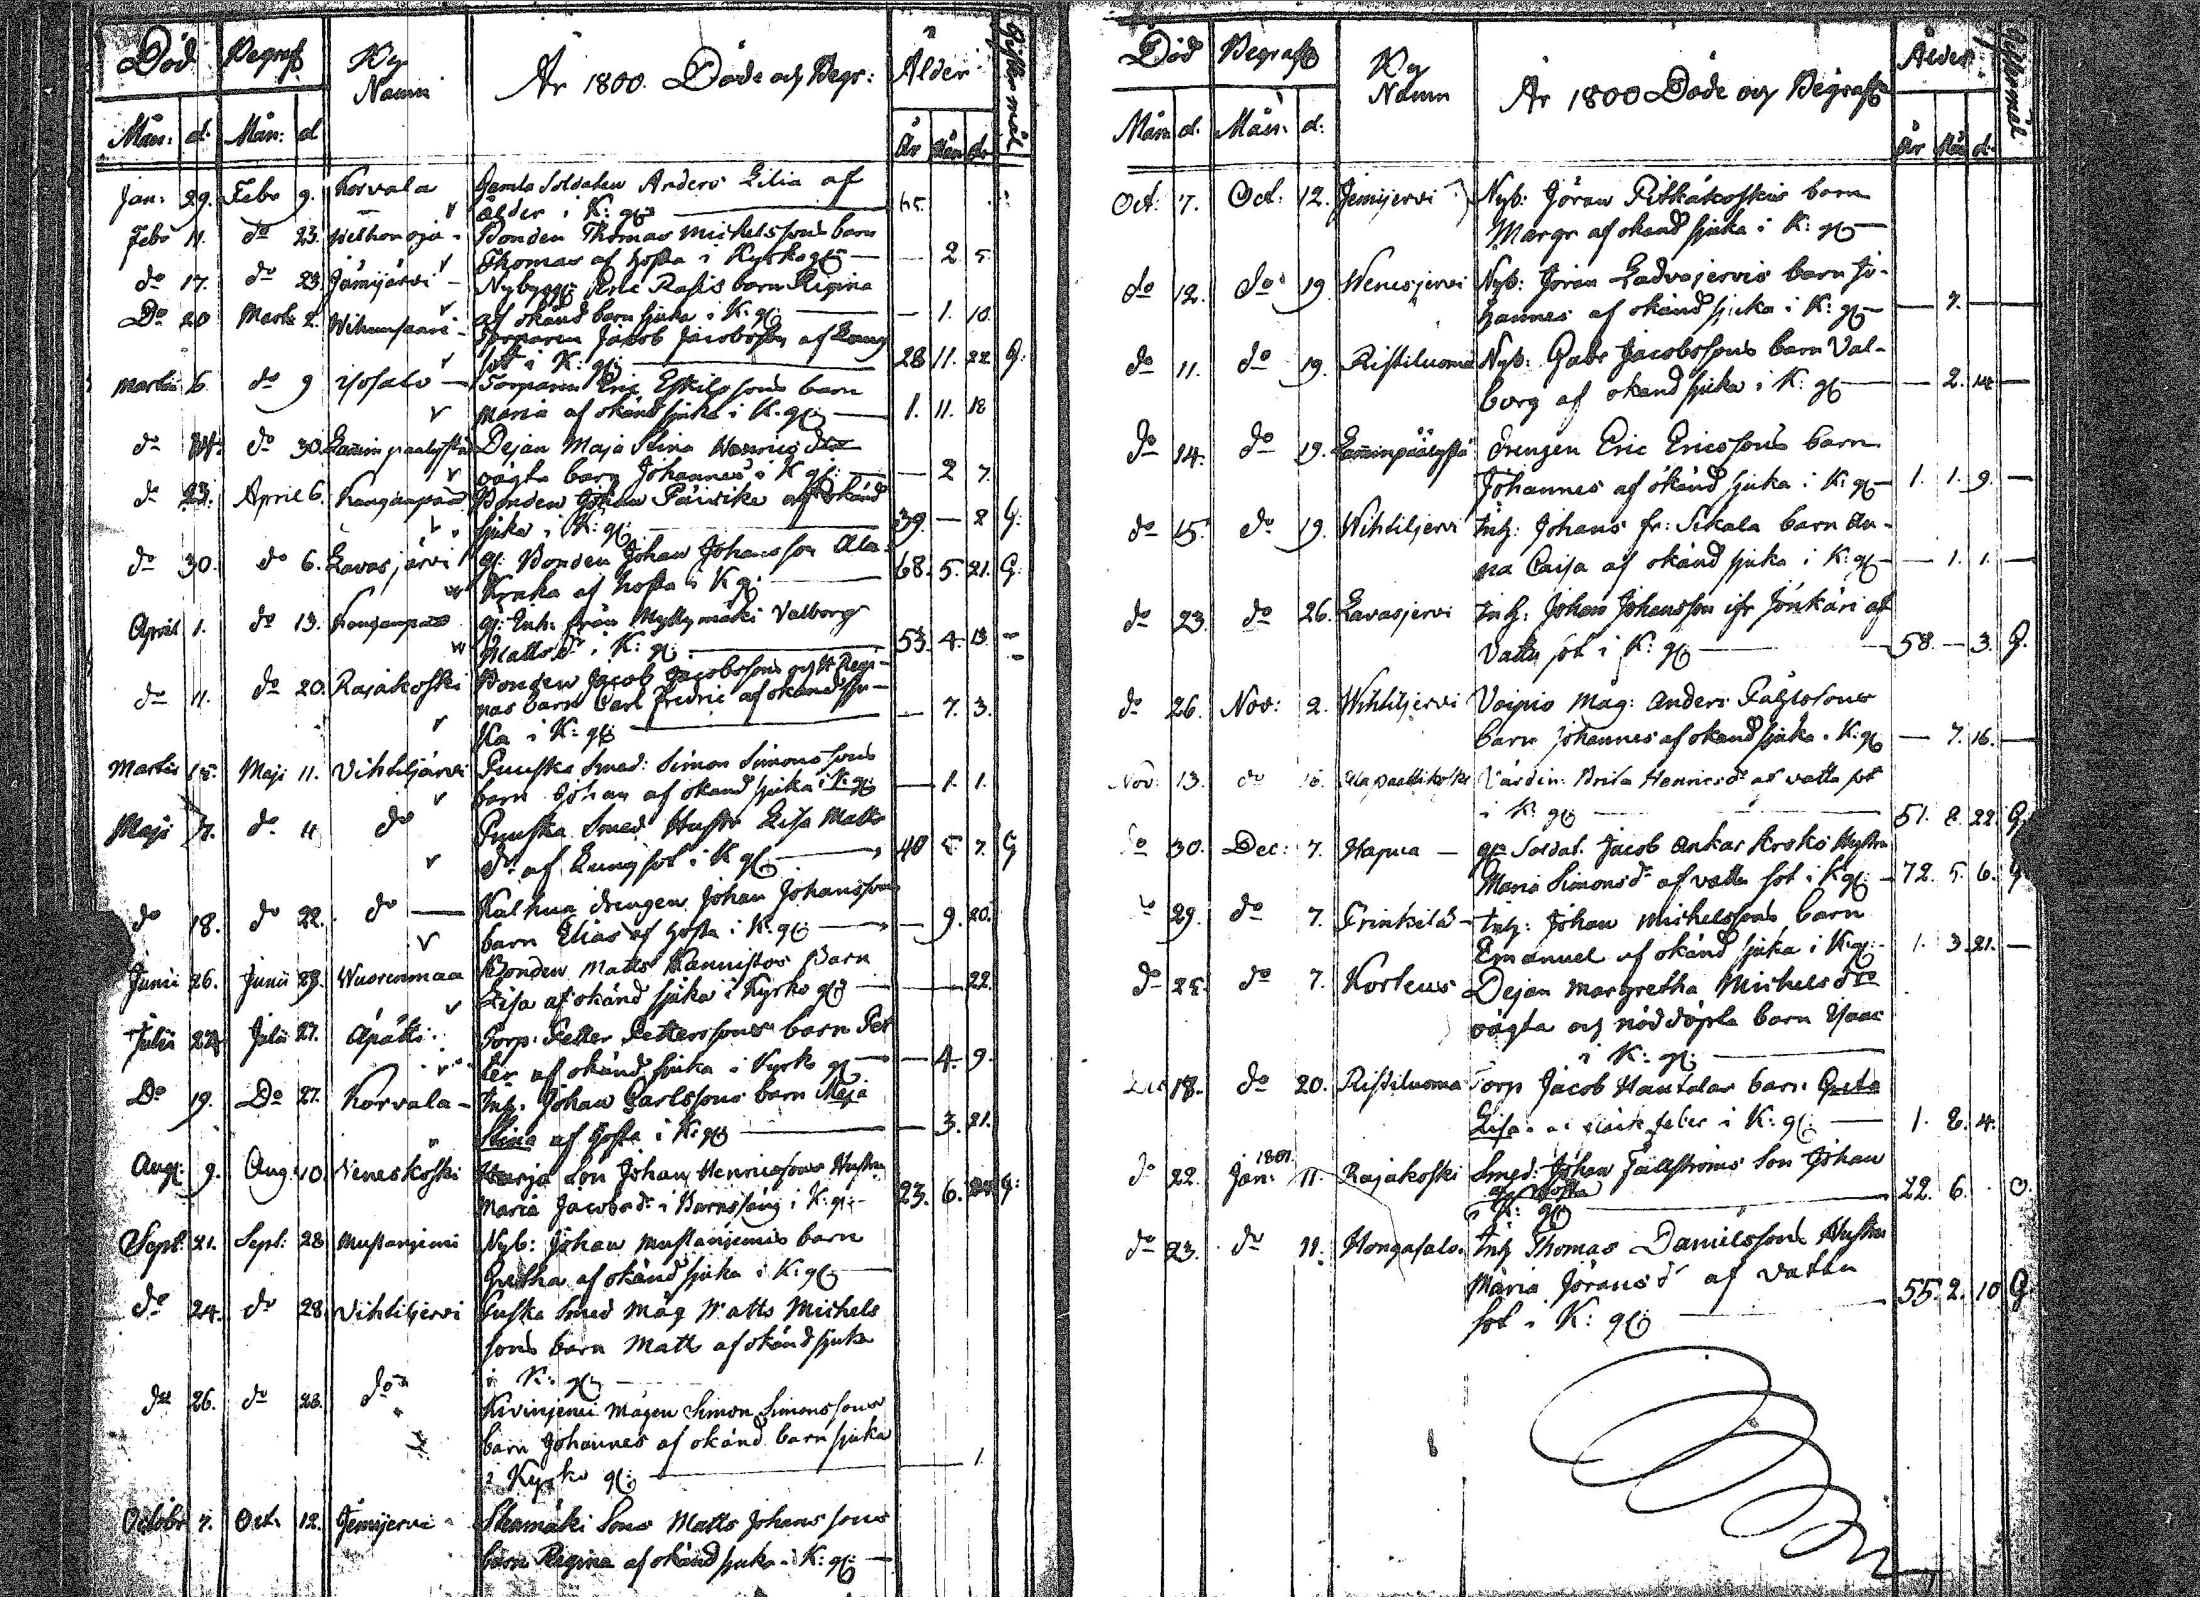 Död Begrafs
By
Namn
År 1800. Döde och Begr:
Ålder
Giftermål
Mån: d: Mån: d
År Mån d.
Jan: 29. Febr 9. Korvala Gamla Soldaten Anders Lilia af
ålder i K: gg:
Febr 11. do 23. Bonden Thomas Michelssons barn
Thomas af hosta i Kyrko gg: — 2 5.
do 17. do 23 Jämijärvi — Nybygg: Eric Rasis barn Regina
af okänd barn sjuka i K: gg: — 1. 10.
Do 20 Marts 2. Wihunsaari - Torparen Jacob Jacobsson af Lung
sot i K: gg: 28 11. 22 G:
Martii 6. do 9 isosalo — Torparen Eric Eskilssons barn
Maria af okänd sjuka i K. gg: 1. 11. 18
do do 30. Lamminpaalystä Pejan Maja Stina Henrics dr
oägta barn Johannes i K gg: — 2 7.
do 23. April 6. Kangaanpää Bonden Johan Päivike af okänd
sjuka i K: gg: 39. — 2 G:
do 30. do 6. Lavasjärvi gg: Bonden Johan Johansson Ala-
Kraka af hosta i K g: 68. 5. 21. G:
April 1. do 13. Kangaanpää gg: Enk: från Myllymäki Valborg
Mattsdr i K: gg: 53. 4. 13. —
do 11. do 20. Rajakoski Bonden Jacob Jacobssons och H Regi-
nas barn Carl Fredric af okänd sju-
ka i K: gg: — 7. 3.
Martii Maji 11. Vihtiljärvi Puuska Smed: Simon Simonssons
barn Johan af okänd sjuka i K: gg: — 1. 1.
Maji do 11 do Puuska Smed Hustr Lisa Matts
dr af Lungsot i K gg: 40 5 7. G
do 18. do 22. do — Kalhua drengen Johan Johanssons
barn Elias af hosta i K: gg: — 9. 20.
Junii 26. Junii 29. Wuorenmaa Bonden Matts Kannistos Barn
Lisa af okänd sjuka i Kyrko gg: — 22.
Julii 22 Julii 27. Apätti: Torp: Petter Petterssons barn Pet
ter af okänd sjuka i Kyrk gg: — 4. 9.
Do 19. Do 27. Korvala - Inh: Johan Carlssons barn Maja
Stina af hosta i K: gg: — 3. 21.
Aug: 9. Aug. 10. Veneskoski Harja Son Johan Henricssons Hustru
Maria Jacobsdr i Barnssäng i K: g: 23. 6. G:
Sept: 21. Sept: 28 Mustanjemi Nyb: Johan Mustanjemis barn
Gretha af okänd sjuka i K: gg:
do 24. do 28 Vihtiljervi Puska Smed Måg Matts Michels
sons barn Matts af okänd sjuka
i K: gg:
do 26. do 28. do Kivinjemi Mågen Simon Simonssons
barn Johannes af okänd barn sjuka
i Kyrko gg: 1.
Octobr 7. Oct. 12. Jemijervi Sons Matts Johans sons
barn Regina af okänd sjuka i K: gg: —
Död Begrafs
By
Namn
År 1800 Döde och Begrafs
Ålder
Giftermål
Mån d. Mån: d:
År Mån d.
Oct: 7. Oct: 12. Jemijervi Nyb: Jöran Pitkäkoskis barn
Margr af okänd sjuka i K: gg: —
do 12. do 19 Wenesjervi Nyb: Jöran Ladvajervis barn Jo-
hannes af okänd sjuka i K: gg: — 7. —
do 11. do 19. Ristiluoma Nyb: Gabr Jacobssons barn Val-
borg af okänd sjuka i K: gg: — 2. 14 —
do 14. do 19. Lamminpäälystä drengen Eric Ericssons barn
Johannes af okänd sjuka i K: gg: 1. 1. 9. —
do 15. do 19. Wihtiljervi Inh: Johans fr: Sikala barn An-
na Caisa af okänd sjuka i K: gg: — 1. 1. —
do 23. do 26. Lavasjervi Inh: Johan Johansson ifr Jönkäri af
Vattu sot i K: gg: 58. — 3. G.
do 26. Nov: 2. Wihtiljervi Voipio Måg: Anders
barn Johannes af okänd sjuka i K: gg — 7. 16. —
Nov: 13. do Värdin: Brita Henricsdr af vattu sot
i K: gg: 51. 8. 22. G.
do 30. Dec: 7. Hapua — gla Soldat. Jacob Ankar Krooks Hustru
Maria Simonsdr af vattu sot i K gg: 72. 5. 6. G
29. do 7. Frinkilä - Inh: Johan Michelssons barn
Emanuel af okänd sjuka i K: gg: 1. 3 21. —
do 25. do 7. Korteus Pejan Margretha Michelsdrs
oägta och nöddöpta barn Isaac
i K: gg:
18. do 20. Ristiluoma Torp Jacob Hantalas barn Greta
Lisa feber i K: gg: — 1. 8. 4.
do 22. 1801. Jan: 11. Rajakoski Smed: Johan Fällströms Son Johan
af hosta
i K: gg: 22. 6. O.
do 23. do 11. Inh Thomas Danielssons Hustru
Maria Jöransdr af Vattu
sot i K: gg: 55. 2. 10 G.